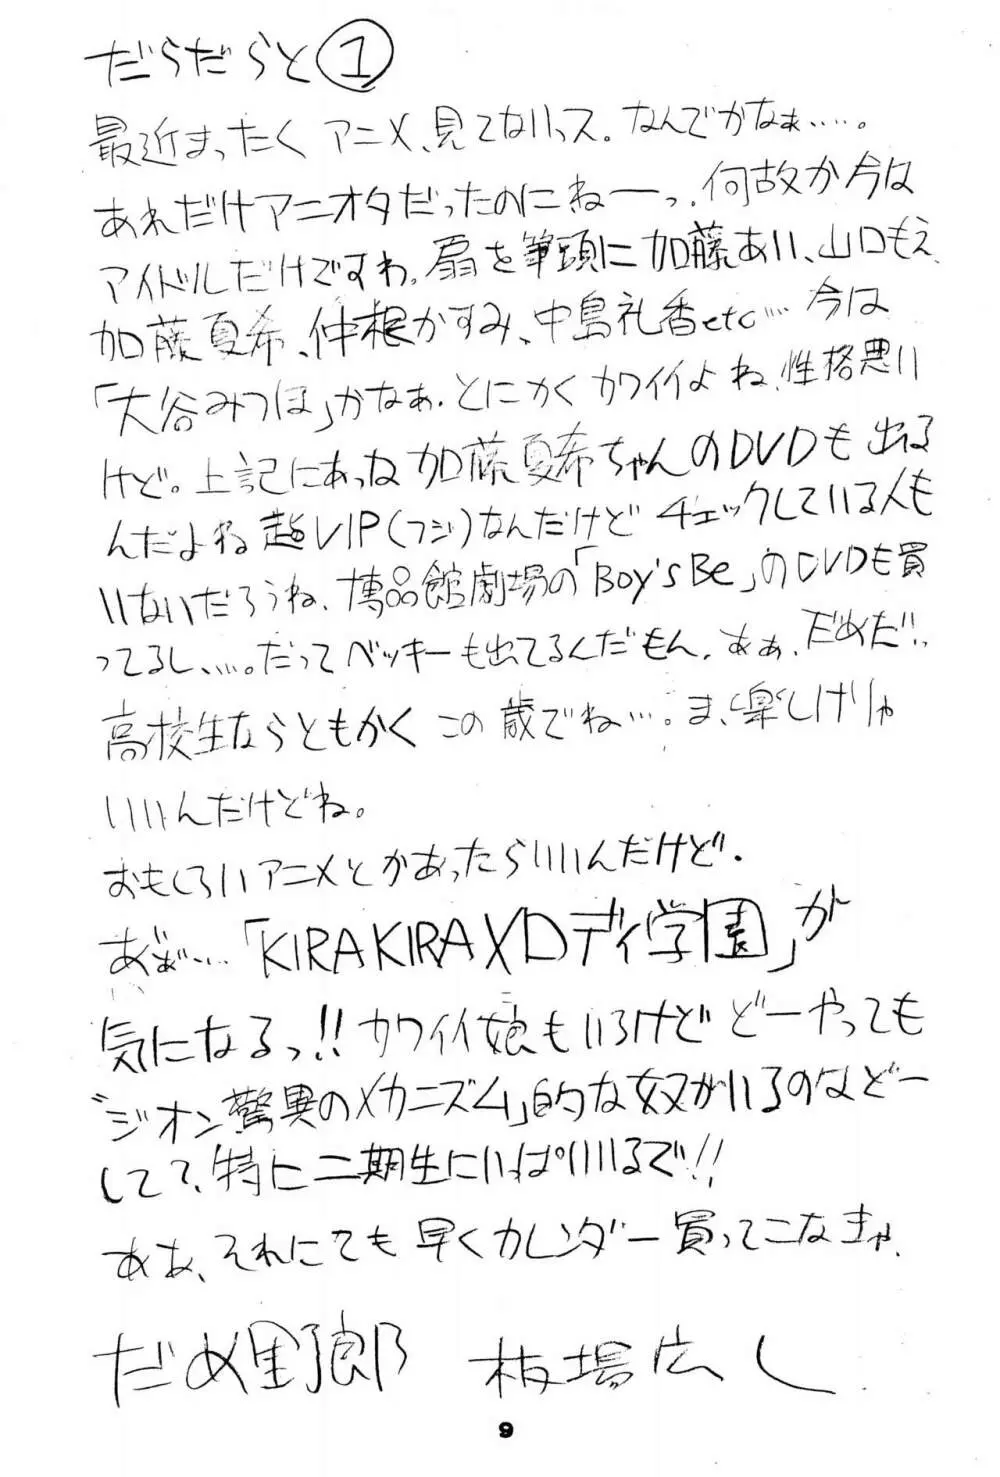 だらだらと①
最近まったく アニメ、見てないっス。なんでかなぁ……。
あれだけアニオタだったのにねーっ、何故か今は
アイドルだけですわ。扇を筆頭に加藤あい、山口もえ、
加藤夏希、仲根かすみ、中島礼香etc… 今は
「大谷みつほ」かなぁ。とにかくカワイイよね、性格悪い
けど。上記にあったね加藤夏希ちゃんのDVDも出る
んだよね 超VIP(フジ)なんだけど チェックしている人も
いないだろうね、博品館劇場の「Boy's Be」のDVDも買
ってるし、…。だってベッキーも出てるんだもん。あぁ、だめだ!っ
高校生ならともかく この歳でね…。ま、楽しけりゃ
いいんだけどね。
おもしろいアニメとかあったらいいんだけど。
あぁ…「KIRAKIRAメロディ学園」が
気になるっ!!カワイイ娘もいるけど どーやっても
"ジオン驚異のメカニズム」的な奴がいるのなどー
してて、特に二期生にいぱいいるで!!
ああ、それにても 早くカレンダー買ってこなきゃ、
だめ野郎 板場広し
9